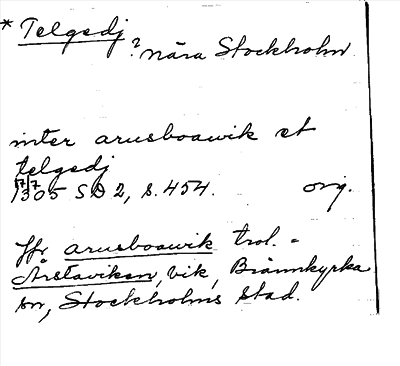 * Telgedj
? nära Stockholm
inter arusboawik et
telgedj
17/7
1305 SD 2, s. 454. orig.
Jfr arusboawik trol. =
Årstaviken, vik, Brännkyrka
sn, Stockholms stad.